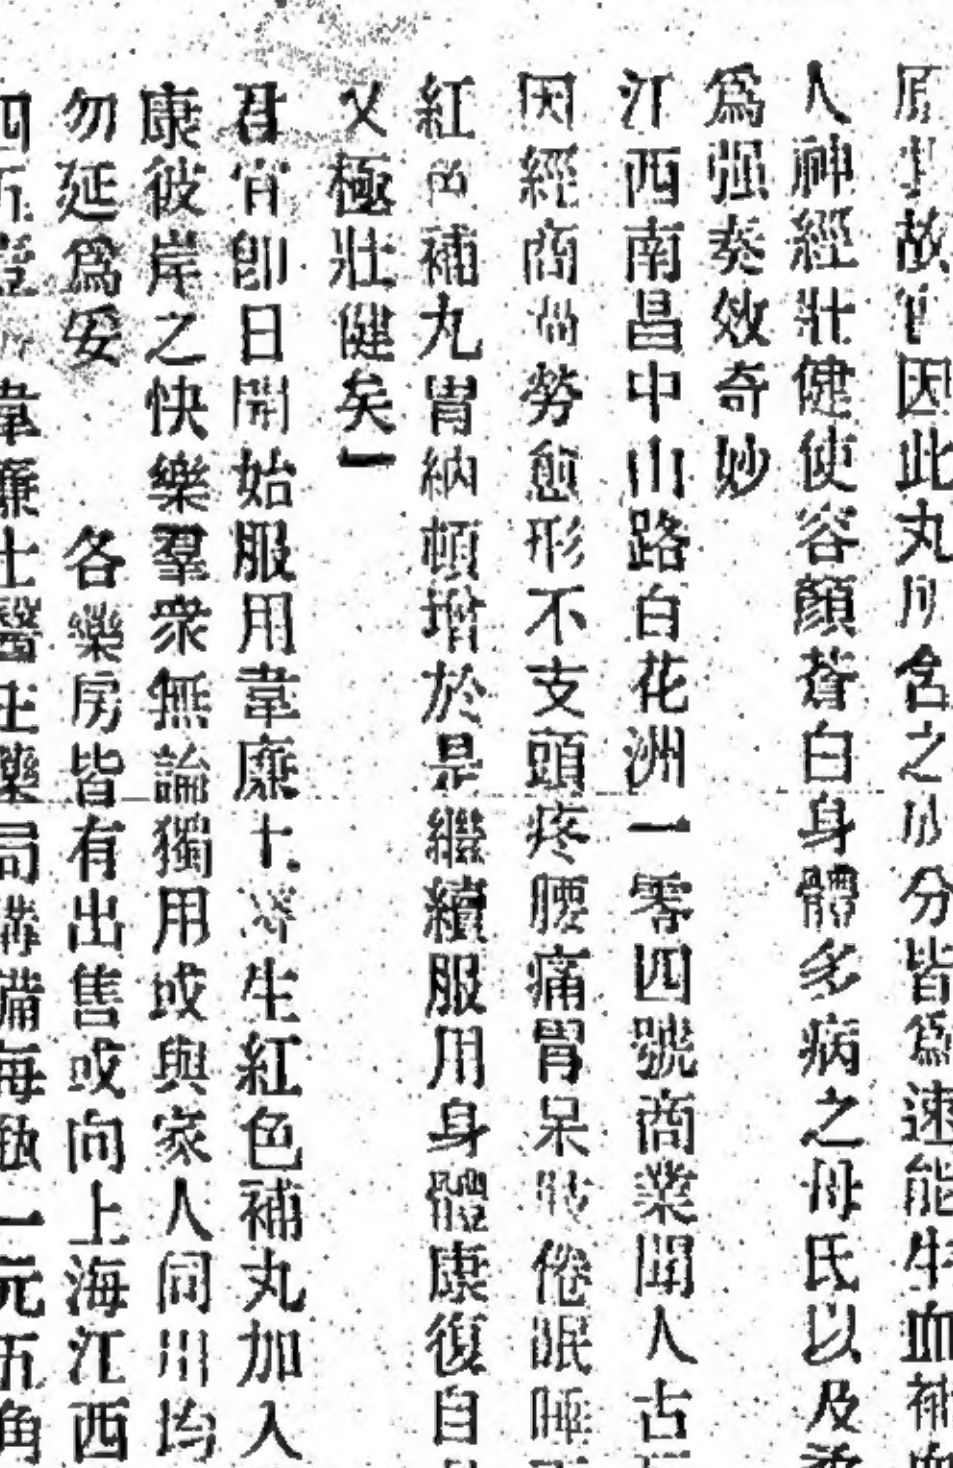 原料故也因此丸所含之成分皆為速能生血補血
人神經壯健使容顏蒼白身體多病之母氏以及柔
爲强奏效奇妙
江西南昌中山路白花洲一零四號商業聞人古
因經商而勞愈形不支頭疼腰痛胃呆疲倦眠睡
紅色補丸胃納頓增於是繼續服用身體康復自
又極壯健矣」
君宵即日開始服用韋廉士醫生紅色補丸加入
康彼岸之快樂羣衆無論獨用或與家人同用均
勿延爲妥　各藥房皆有出售或向上海江西
四所登　韋廉士醫生藥局購備每瓶一元五角